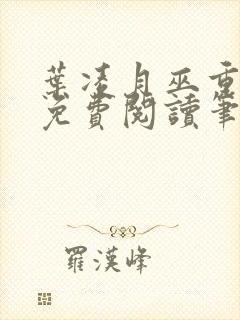 葉凌月巫重
免費閱讀筆
羅漢峰